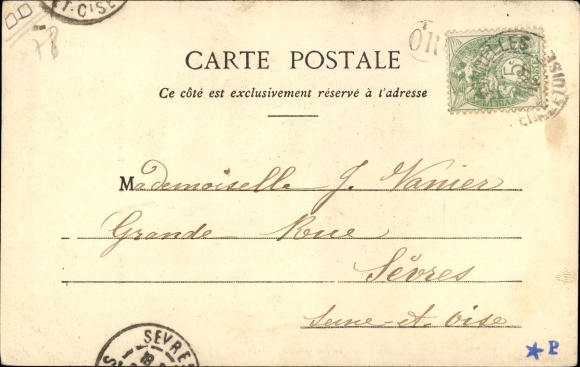 ET-OISE
78
CARTE POSTALE
Ce côté est exclusivement réservé à l'adresse
OR
5
Mademoiselle J. Vanier
Grande Rue
Sèvres
Seine-et-Oise
SEVRES
P